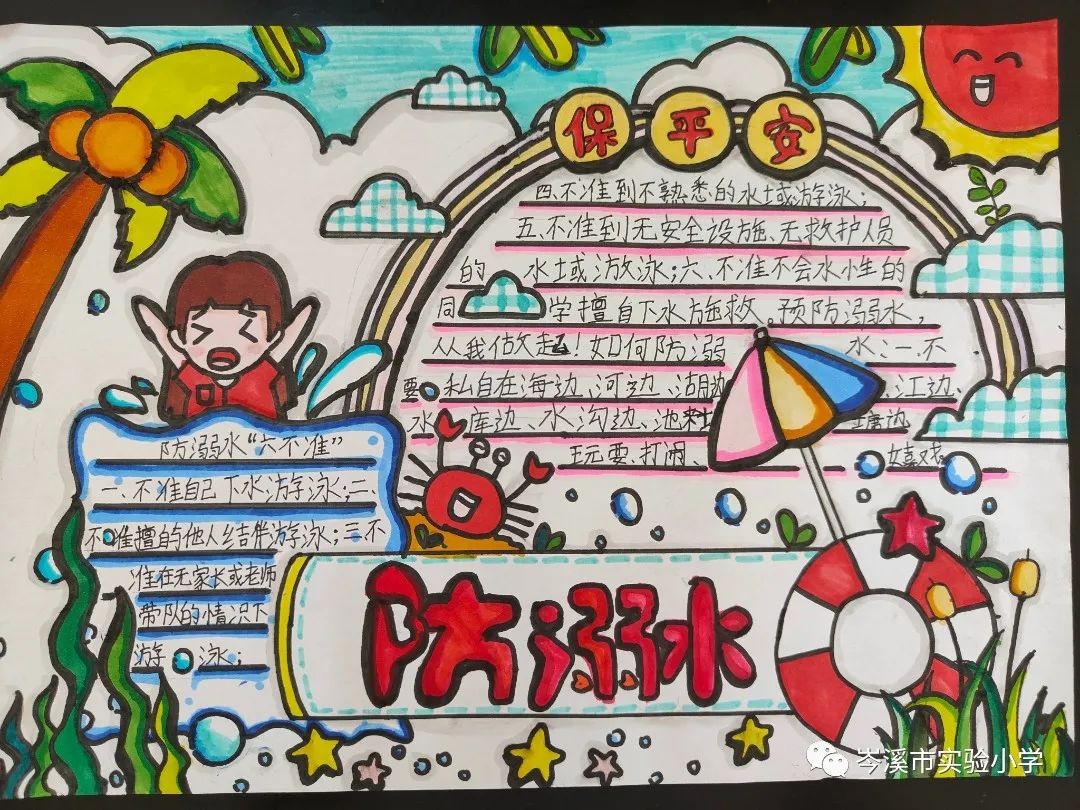 保平安
四、不准到不熟悉的水域游泳；
五、不准到无安全设施、无救护人员
的 水域游泳；六、不准不会水性的
同 学擅自下水施救。预防溺水，
从我做起！如何防溺 水：一、不
要 私自在海边、河边、湖边、 江边、
水 库边、水沟边、池 塘边
玩耍、打闹、 嬉戏
防溺水“六不准”
一、不准自己下水游泳；二、
不准擅自的他人结伴游泳；三、不
准在无家长或老师
带队的情况下
游 泳；
防溺水
岑溪市实验小学